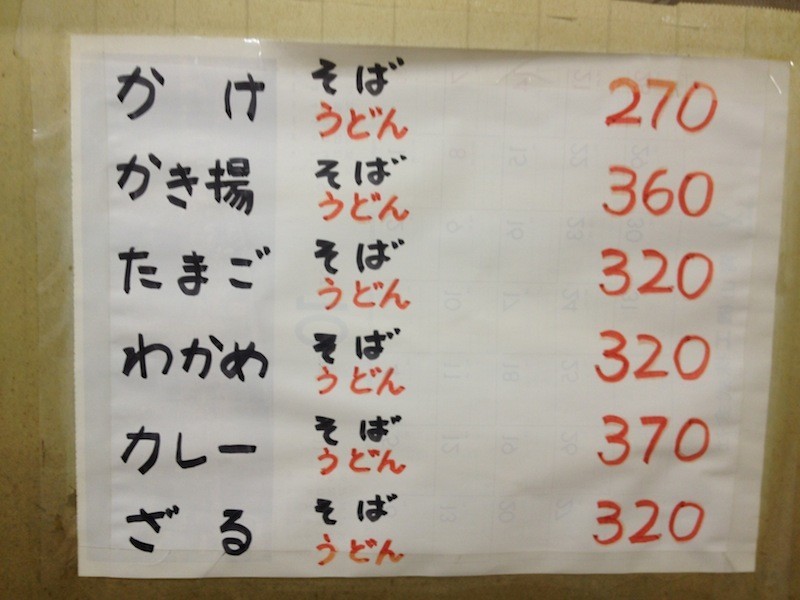 かけ そば うどん 270
かき揚 そば うどん 360
たまご そば うどん 320
わかめ そば うどん 320
カレー そば うどん 370
ざる そば うどん 320